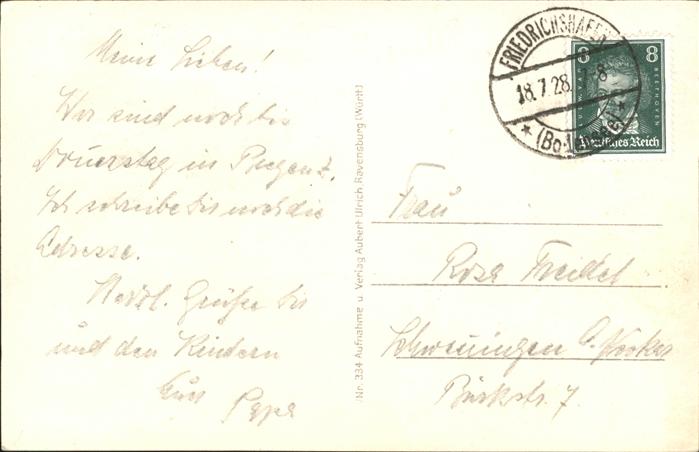 Meine Lieben!
Wir sind noch bis
Donnerstag in Bregenz.
Ich schreibe dir noch die
Adresse.
Herzl. Grüße dir
und den Kindern
Euer
Papa
Nr. 334 Aufnahme u. Verlag Aubert Ulrich Ravensburg (Württ)
FRIEDRICHSHAFEN
18.7.28. 8
* (Bodensee) *
8 8
LUDW. VAN BEETHOVEN
Deutsches Reich
Frau
Rosa
Schwenningen a. Neckar
Bürkstr. 7